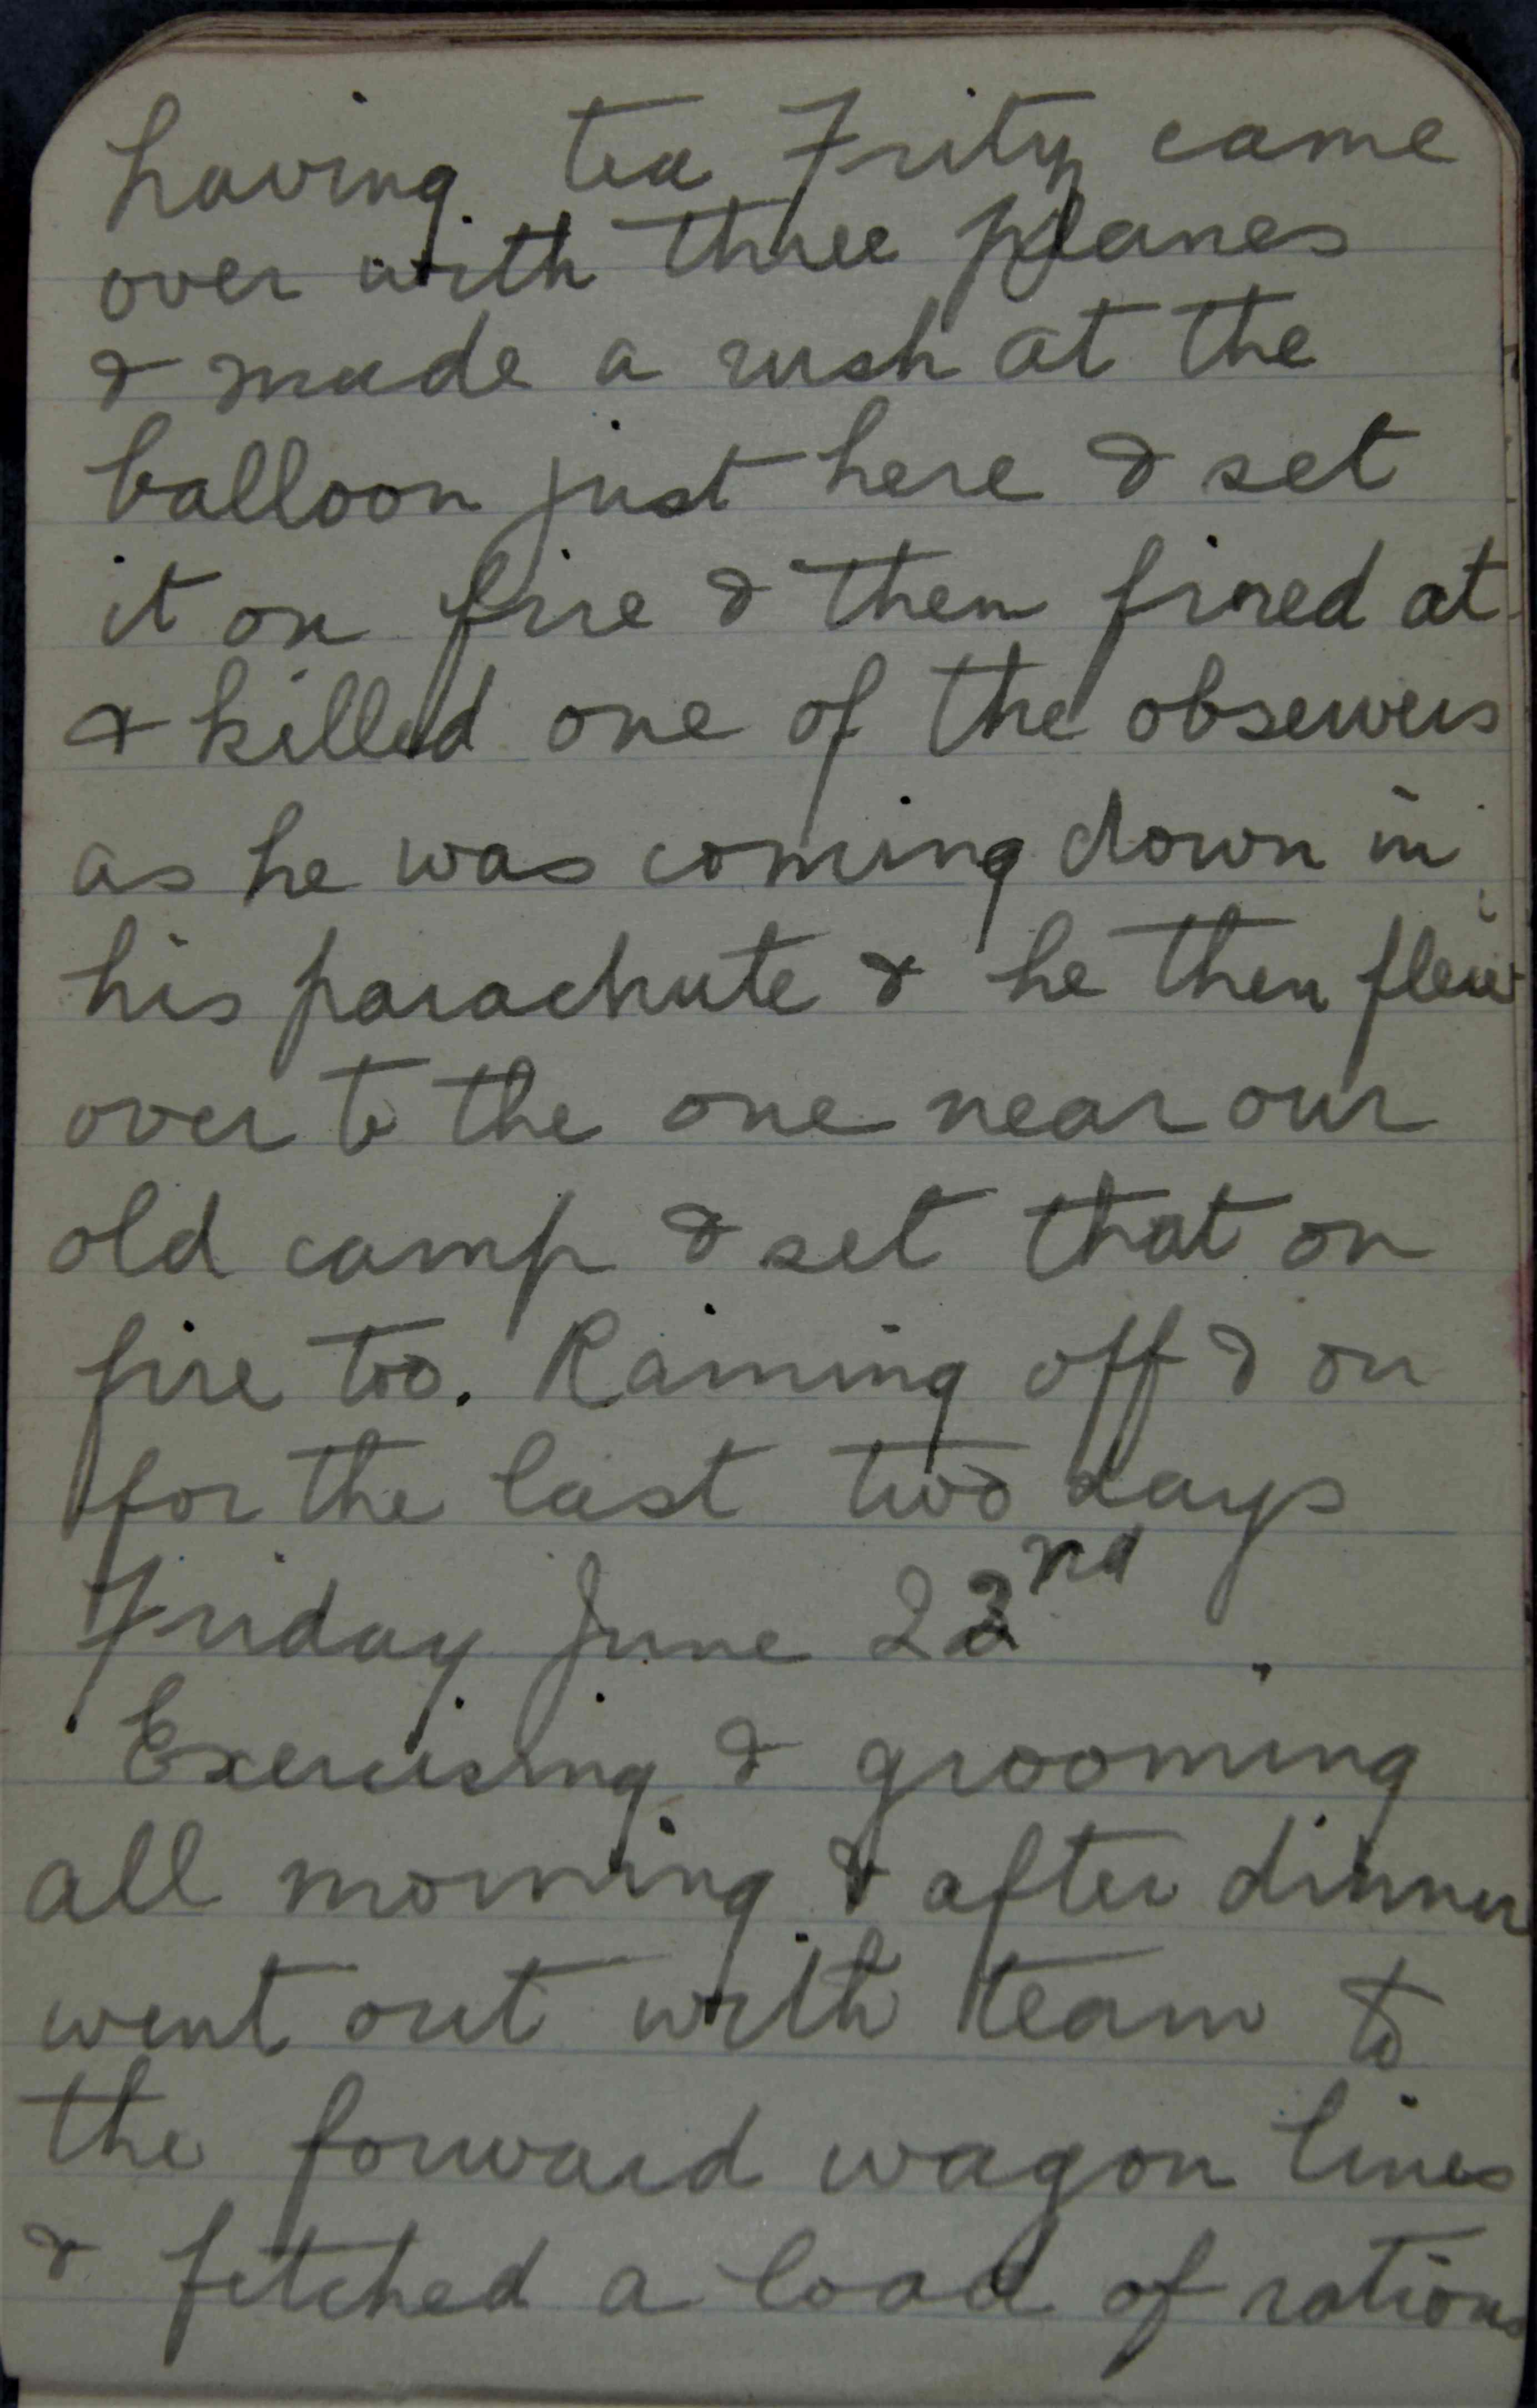 having tea Fritz came
over with three planes
& made a rush at the
balloon just here & set
it on fire & then fired at
& killed one of the observers
as he was coming down in
his parachute & he then flew
over to the one near our
old camp & set that on
fire too. Raining off & on
for the last two days
Friday June 22nd
Exercising & grooming
all morning & after dinner
went out with team to
the forward wagon lines
& fetched a load of rations